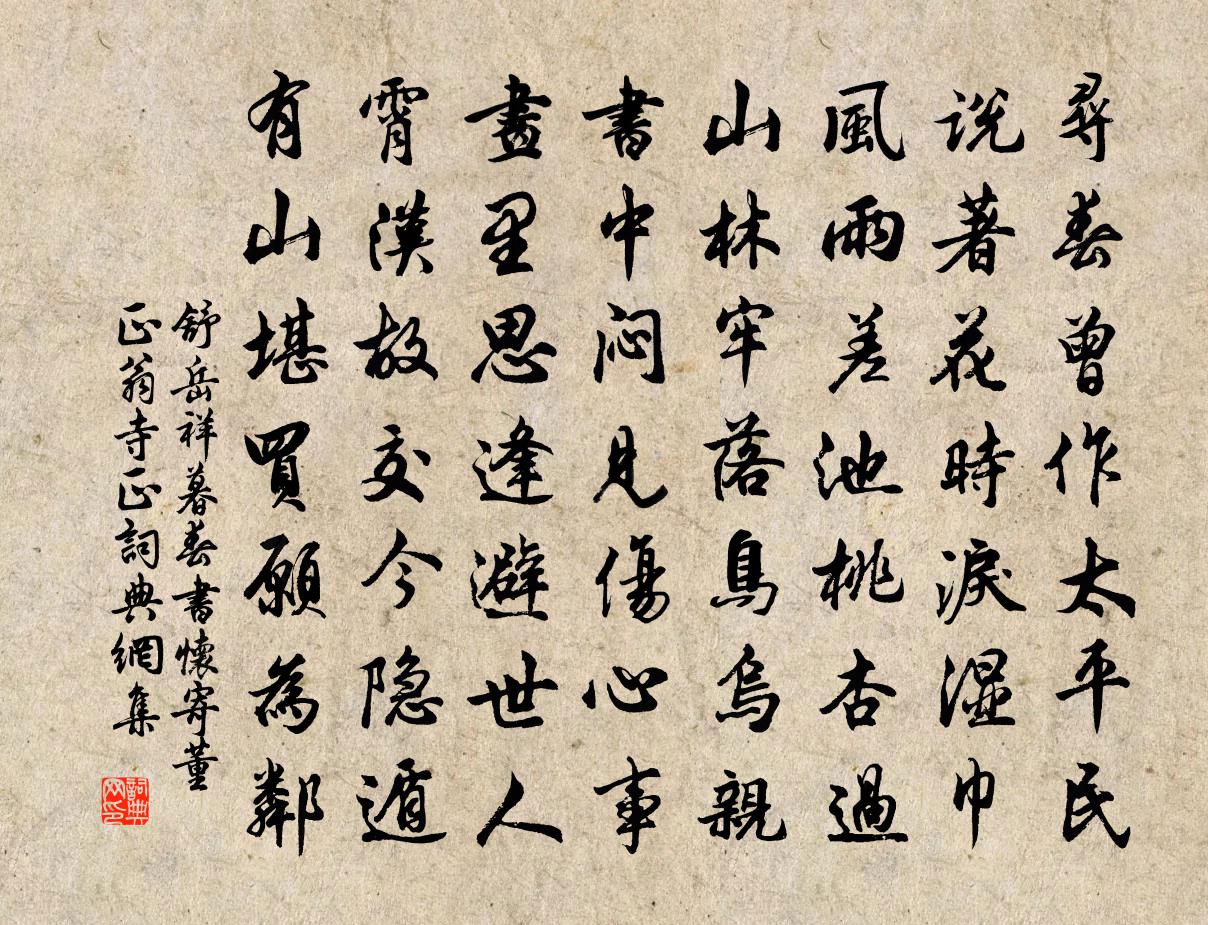 尋春曾作太平民
說著花時淚濕巾
風雨差池桃杏過
山林牢落鳥烏親
書中悶見傷心事
畫里思逢避世人
霄漢故交今隐遁
有山堪買願為鄰
舒岳祥暮春書懷寄董
正翁寺正詞典網集
詞典
网印